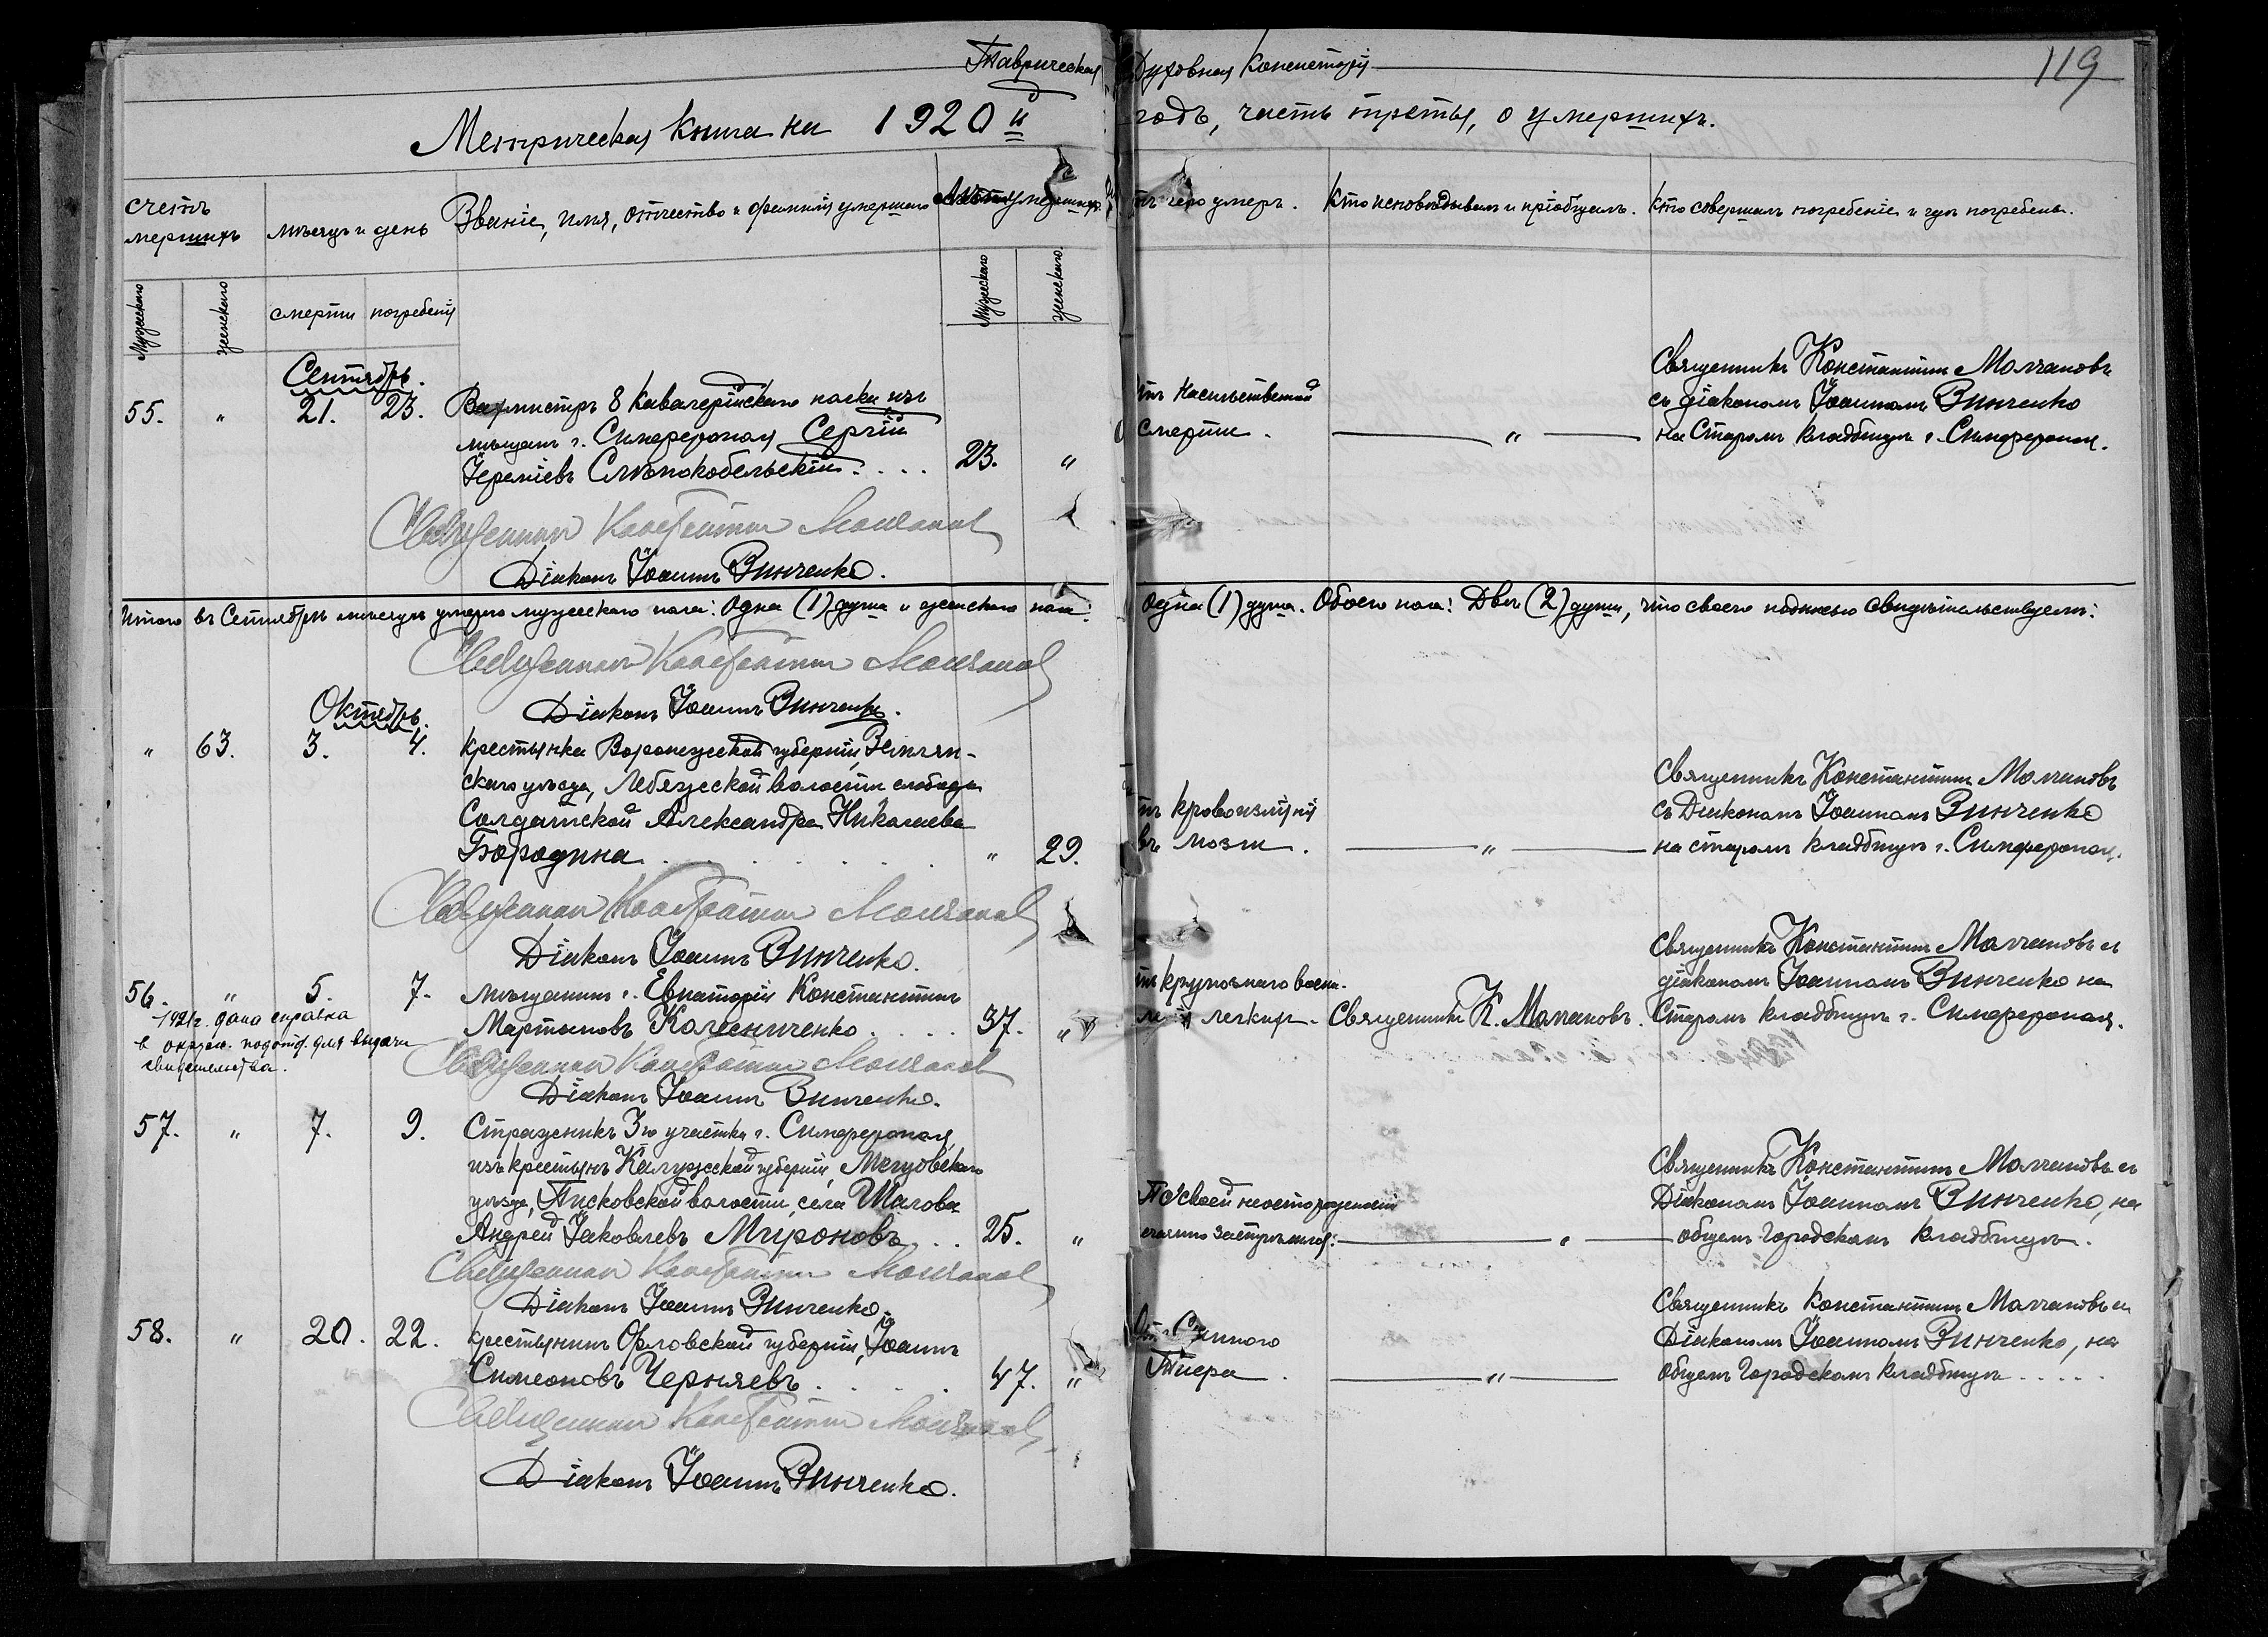 Таврическая Духовная Консисторія
119
Метрическая книга на 1920 й годъ, часть третья, о умершихъ.
счетъ
мершихъ
мѣсяцъ и день
Званіе, имя, отчество и фамилія умершаго
Лѣта умершихъ
тъ чего умеръ.
Кто исповѣдывалъ и пріобщалъ.
Кто совершалъ погребеніе и гдѣ погребены.
Мужескаго
женскаго
смерти
погребенія
Мужескаго
женскаго
Сентябрь.
55. " 21. 23.
Вахмистръ 8 Кавалерійскаго полка изъ
мѣщанъ г. Симферополя Сергій
Іереміевъ Слѣпокобельскій . . . . 23. "
тъ насильственной
смерти. "
Священникъ Константинъ Молчановъ
съ діакономъ Іоанномъ Зинченко
на Старомъ кладбищѣ г. Симферополя.
Священникъ Константинъ Молчановъ
Діаконъ Іоаннъ Зинченко.
Итого въ Сентябрѣ мѣсяцѣ умерло мужескаго пола: одна (1) душа и женскаго пола: одна (1) душа. Обоего пола: Двѣ (2) души, что своею подписью свидѣтельствуемъ:
Священникъ Константинъ Молчановъ
Діаконъ Іоаннъ Зинченко.
Октябрь.
" 63. 3. 4.
Крестьянка Воронежской губерніи, Землян-
скаго уѣзда, Лебяжеской волости слободы
Солдатской Александра Николаева
Бородина . . . . . . . " 29.
тъ кровоизліянія
въ мозги. "
Священникъ Константинъ Молчановъ
съ Діакономъ Іоанномъ Зинченко
на старомъ кладбищѣ г. Симферополя.
Священникъ Константинъ Молчановъ
Діаконъ Іоаннъ Зинченко.
56. " 5. 7.
мѣщанинъ г. Евпаторіи Константинъ
Мартыновъ Колесниченко . . . . 37. "
тъ крупознаго воспа-
ле я легкихъ.
Священникъ К. Молчановъ.
Священникъ Константинъ Молчановъ съ
діакономъ Іоанномъ Зинченко на
Старомъ кладбищѣ г. Симферополя.
1921 г. дана справка
в подотд. для выдачи
свидетельства.
Священникъ Константинъ Молчановъ
Діаконъ Іоаннъ Зинченко.
57. " 7. 9.
Стражникъ 3го участка г. Симферополя,
изъ крестьянъ Калужской губерніи, Мещовскаго
уѣзда, Писковской волости, села Шалова
Андрей Іаковлевъ Мироновъ . . 25. "
По своей неосторожности
"
Священникъ Константинъ Молчановъ съ
Діакономъ Іоанномъ Зинченко, на
общемъ Городскомъ кладбищѣ.
Священникъ Константинъ Молчановъ
Діаконъ Іоаннъ Зинченко.
58. " 20. 22.
Крестьянинъ Орловской губерніи, Іоаннъ
Симеоновъ Черняевъ . . . . . 47. "
Отъ Сыпного
Тифа. "
Священникъ Константинъ Молчановъ съ
Діакономъ Іоанномъ Зинченко, на
общемъ Городскомъ кладбищѣ . . . . .
Священникъ Константинъ Молчановъ
Діаконъ Іоаннъ Зинченко.